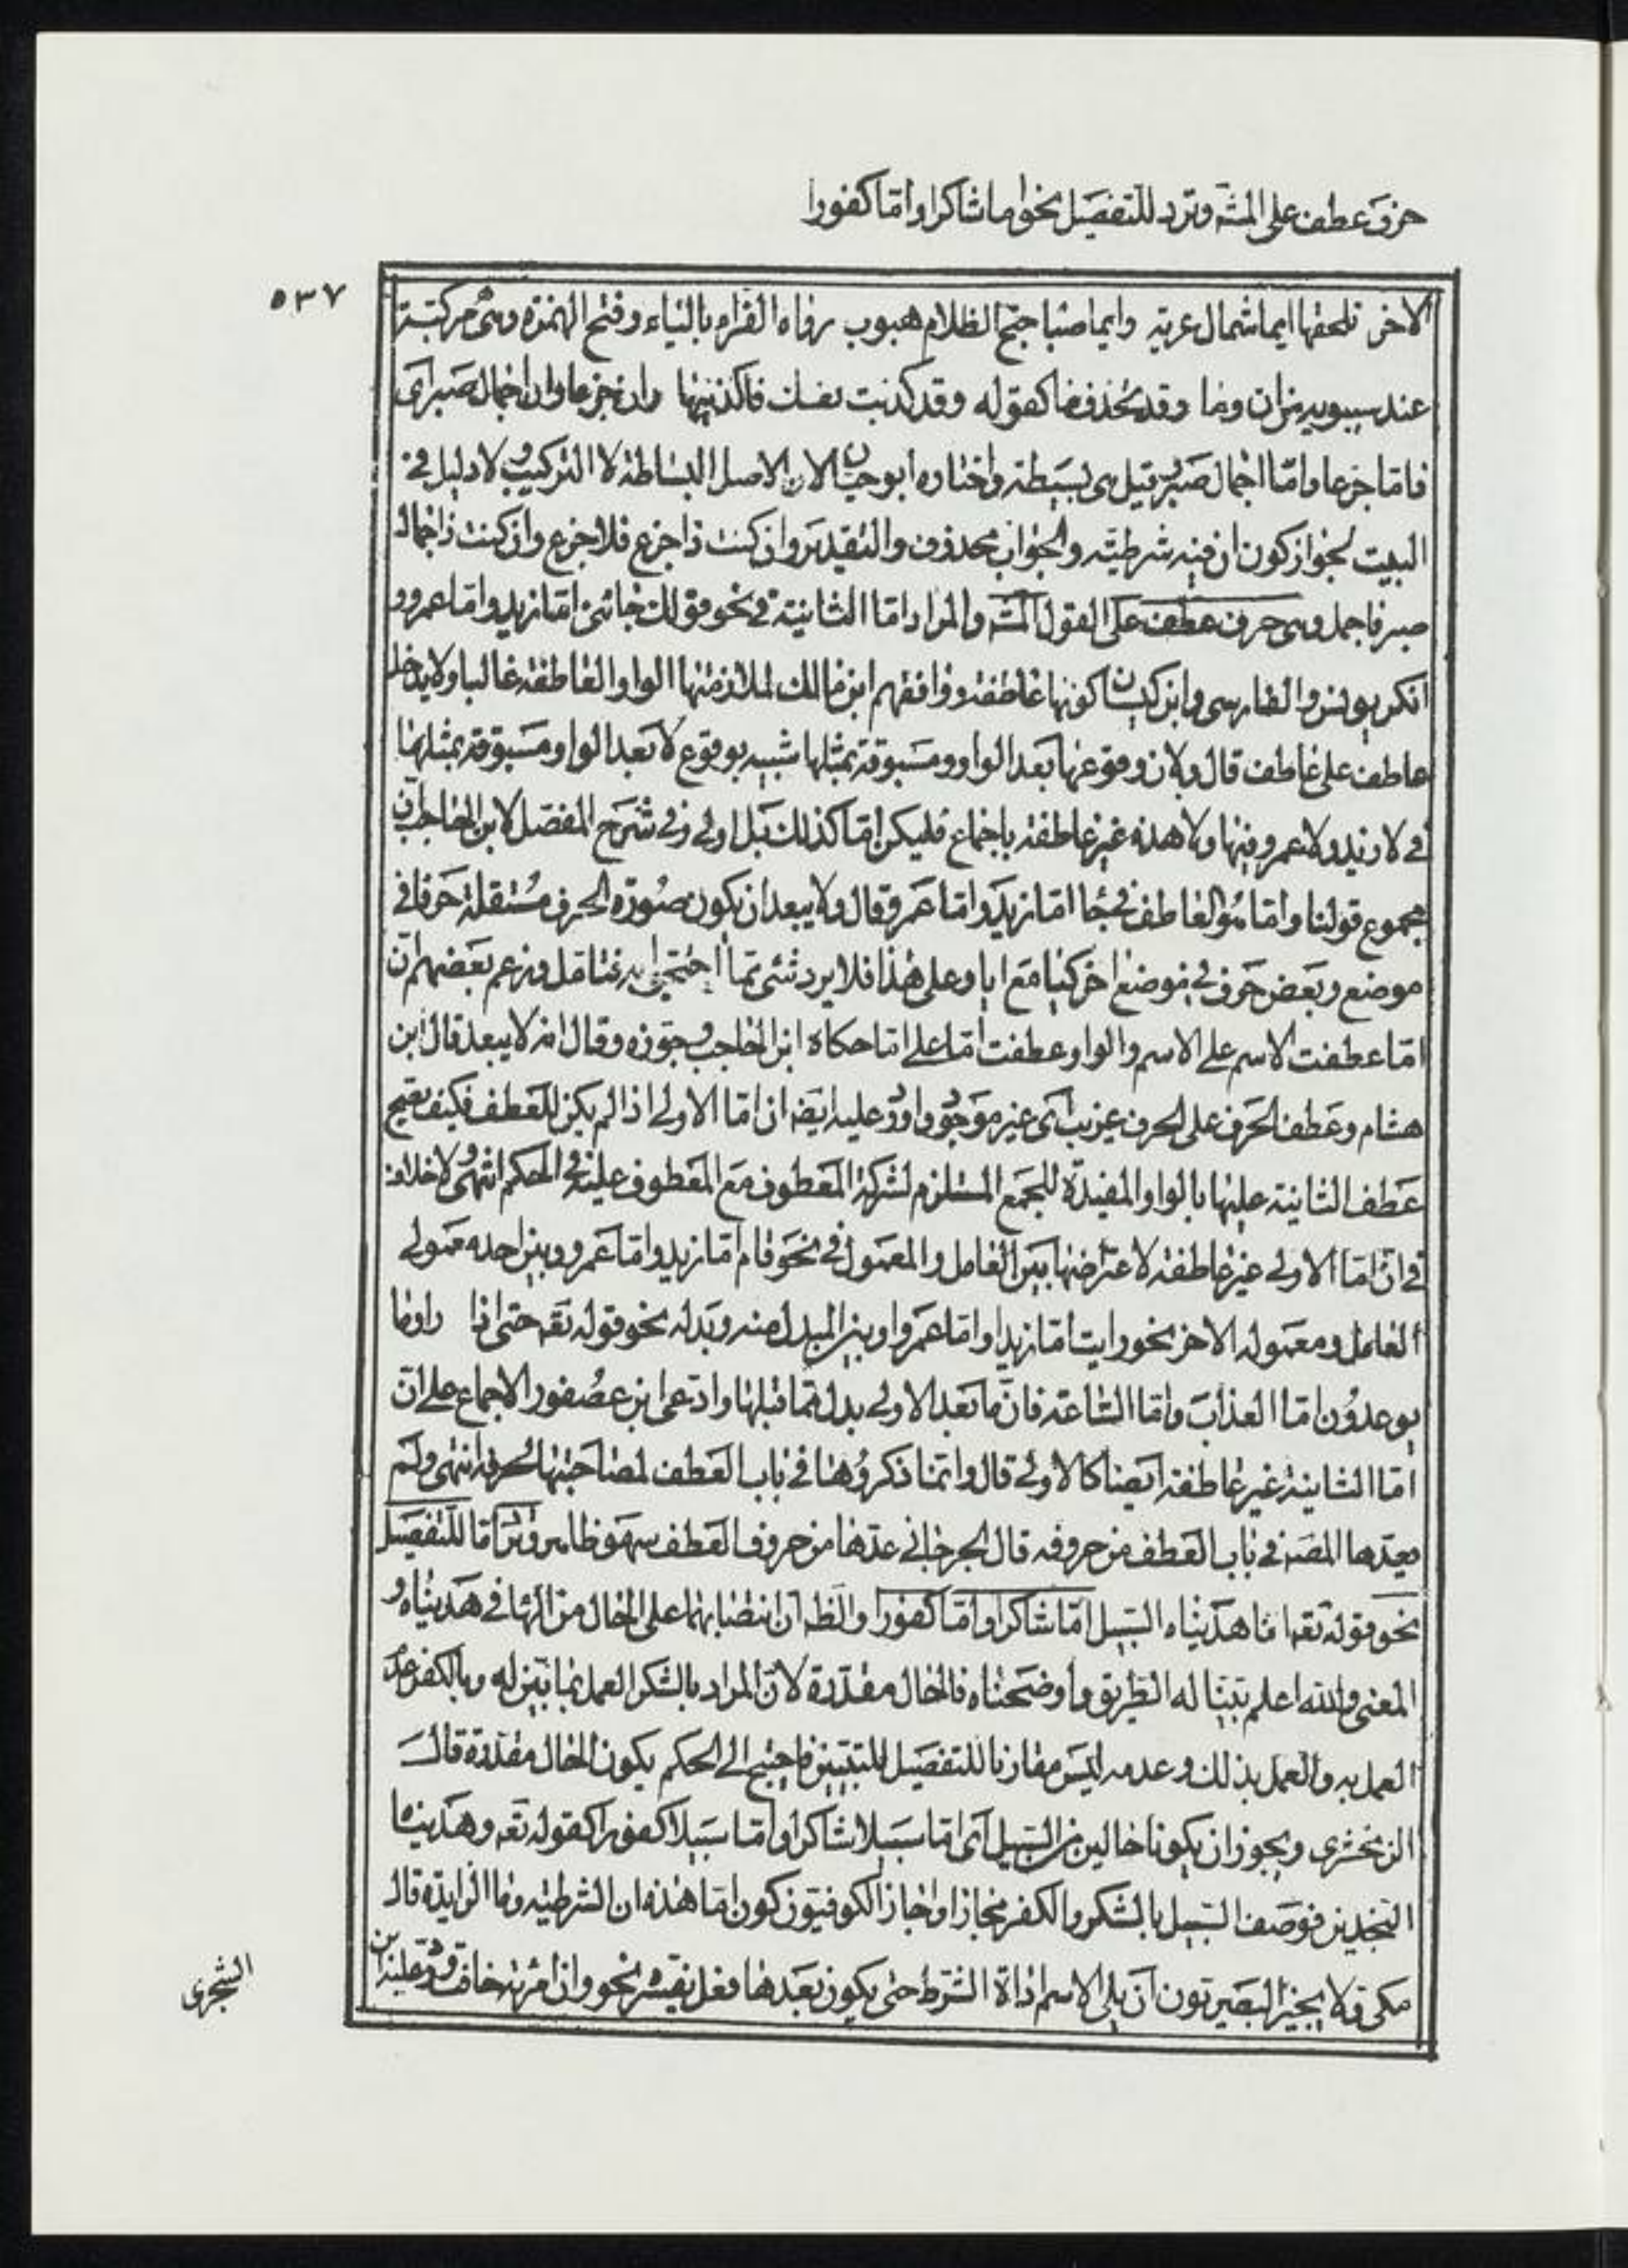 حرف عطف على المشه وترد للتفصيل نحو اما شاكرا واما كفورا
٥٣٧
الاخر تلحقها ايما شمال عرية وايما صبا جنح الظلام هبوب رواه الفراء بالياء وفتح الهمزة وهى مركبة
عند سيبويه من ان وما وقد يحذف ما كقوله وقد كذبت نفسك فاكذبنها وان جزعا وان اجمال صبر اى
فاما جزعا واما اجمال صبر وقيل هى بسيطة واختاره ابوحيان لان الاصل البساطة لا التركيب ولا دليل فى
البيت لجواز كون ان فيه شرطية والجواب محذوف والتقدير وان كنت ذا جزع فلا جزع وان كنت ذا جمال
صبر فاجمل وهى حرف عطف على القول المشه والمراد اما الثانية فى نحو قولك جائنى اما زيد واما عمرو و
انكر يونس والفارسى وابن كيسان كونها عاطفة ووافقهم ابن مالك لملازمتها الواو العاطفة غالبا ولا يدخل
عاطف على عاطف قال ولان وقوعها بعد الواو ومسبوقة بمثلها شبيه بوقوع لا بعد الواو ومسبوقة بمثلها
فى لا زيد ولا عمرو فيها ولا هذه غير عاطفة باجماع فليكن اما كذلك بل اولى وفى شرح المفصل لابن الحاجب ان
مجموع قولنا واما هو العاطف فى جا اما زيد واما عمرو قال ولا يبعد ان يكون صورة الحرف مستقلة حرفا فى
موضع وبعض حرف فى موضع اخر كيا مع ايا وعلى هذا فلا يرد شئ مما احتجوا به فتامل وزعم بعضهم ان
اما عطفت الاسم على الاسم والواو عطفت اما على اما حكاه ابن الحاجب وجوزه وقال انه لا يبعد قال ابن
هشام وعطف الحرف على الحرف غريب اى غير موجود واورد عليه ايضه ان اما الاولى اذا لم يكن للعطف فكيف يصح
عطف الثانية عليها بالواو المفيدة للجمع المستلزم لشركة المعطوف مع المعطوف عليه فى الحكم انتهى ولا خلاف
فى ان اما الاولى غير عاطفة لاعتراضها بين العامل والمعمول فى نحو قام اما زيد واما عمرو وبين احد معمولى
العامل ومعموله الاخر نحو رايت اما زيدا واما عمروا وبين المبدل منه وبدله نحو قوله تعه حتى اذا راوا ما
يوعدون اما العذاب واما الساعة فان ما بعد الاولى بدل مما قبلها وادعى ابن عصفور الاجماع على ان
اما الثانية غير عاطفة ايضا كالاولى قال وانما ذكروها فى باب العطف لمصاحبتها لحرفه انتهى ولم
يعدها المصه فى باب العطف من حروفه قال الجرجانى عدها من حروف العطف سهو ظاهر وترد اما للتفصيل
نحو قوله تعه انا هديناه السبيل اما شاكرا واما كفورا والظه ان انتصابهما على الحال من الها فى هديناه و
المعنى والله اعلم بينا له الطريق واوضحناه فالحال مقدرة لان المراد بالشكر العمل بما بين له وبالكفر عدم
العمل به والعمل بذلك وعدمه ليس مقارنا للتفصيل للتبيين فاحتيج الى الحكم بكون الحال مقدرة قال
الزمخشرى ويجوز ان يكونا حالين من السبيل اى اما سبيلا شاكرا واما سبيلا كفورا كقوله تعه وهديناه
النجدين فوصف السبيل بالشكر والكفر مجازا واجاز الكوفيون كون اما هذه ان الشرطية وما الزايدة قال
مكى ولا يجيز البصريون ان يلى الاسم اداة الشرط حتى يكون بعدها فعل يفسره نحو وان امرئة خافت ورد عليه ابن
الشجرى